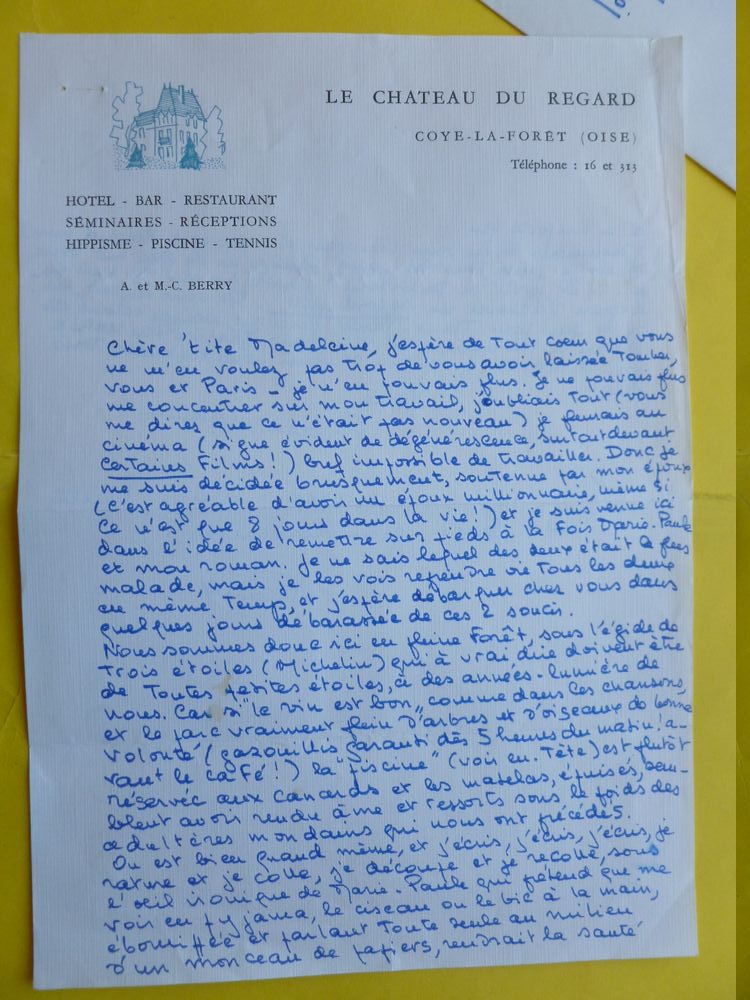 LE CHATEAU DU REGARD
COYE-LA-FORÊT (OISE)
Téléphone : 16 et 313
HOTEL - BAR - RESTAURANT
SÉMINAIRES - RÉCEPTIONS
HIPPISME - PISCINE - TENNIS
A. et M.-C. BERRY
Chère 'tite Madeleine, j'espère de tout coeur que vous
ne m'en voulez pas trop de vous avoir laissée tomber,
vous et Paris - je n'en pouvais plus. Je ne pouvais plus
me concentrer sur mon travail, j'oubliais tout (vous
me direz que ce n'était pas nouveau) je pleurais au
cinéma (signe évident de dégénérescence, surtout devant
certains films !) bref impossible de travailler. Donc je
me suis décidée brusquement, soutenue par mon époux
(c'est agréable d'avoir un époux millionnaire, même si
ce n'est que 8 jours dans la vie !) et je suis venue ici
dans l'idée de remettre sur pieds à la fois Marie-Paule
et mon roman. Je ne sais lequel des deux était le plus
malade, mais je les vois reprendre vie tous les deux
en même temps, et j'espère débarquer chez vous dans
quelques jours débarassée de ces 2 soucis.
Nous sommes donc ici en pleine forêt, sous l'égide de
trois étoiles (Michelin) qui à vrai dire doivent être
de toutes petites étoiles, à des années-lumière de
nous. Car si "le vin est bon" comme dans les chansons,
et le parc vraiment plein d'arbres et d'oiseaux de bonne
volonté (gazouillis garanti dès 5 heures du matin ! a-
vant le café !) la "piscine" (voir en-tête) est plutôt
réservée aux canards et les matelas, épuisés, sem-
blent avoir rendu âme et ressorts sous le poids des
adultères mondains qui nous ont précédés.
On est bien quand même, et j'écris, j'écris, j'écris, je
rature et je colle, je découpe et je recolle, sous
l'oeil ironique de Marie-Paule qui prétend que me
voir en pyjama, le ciseau ou le bic à la main,
ébouriffée et parlant toute seule au milieu
d'un monceau de papiers, rendrait la santé